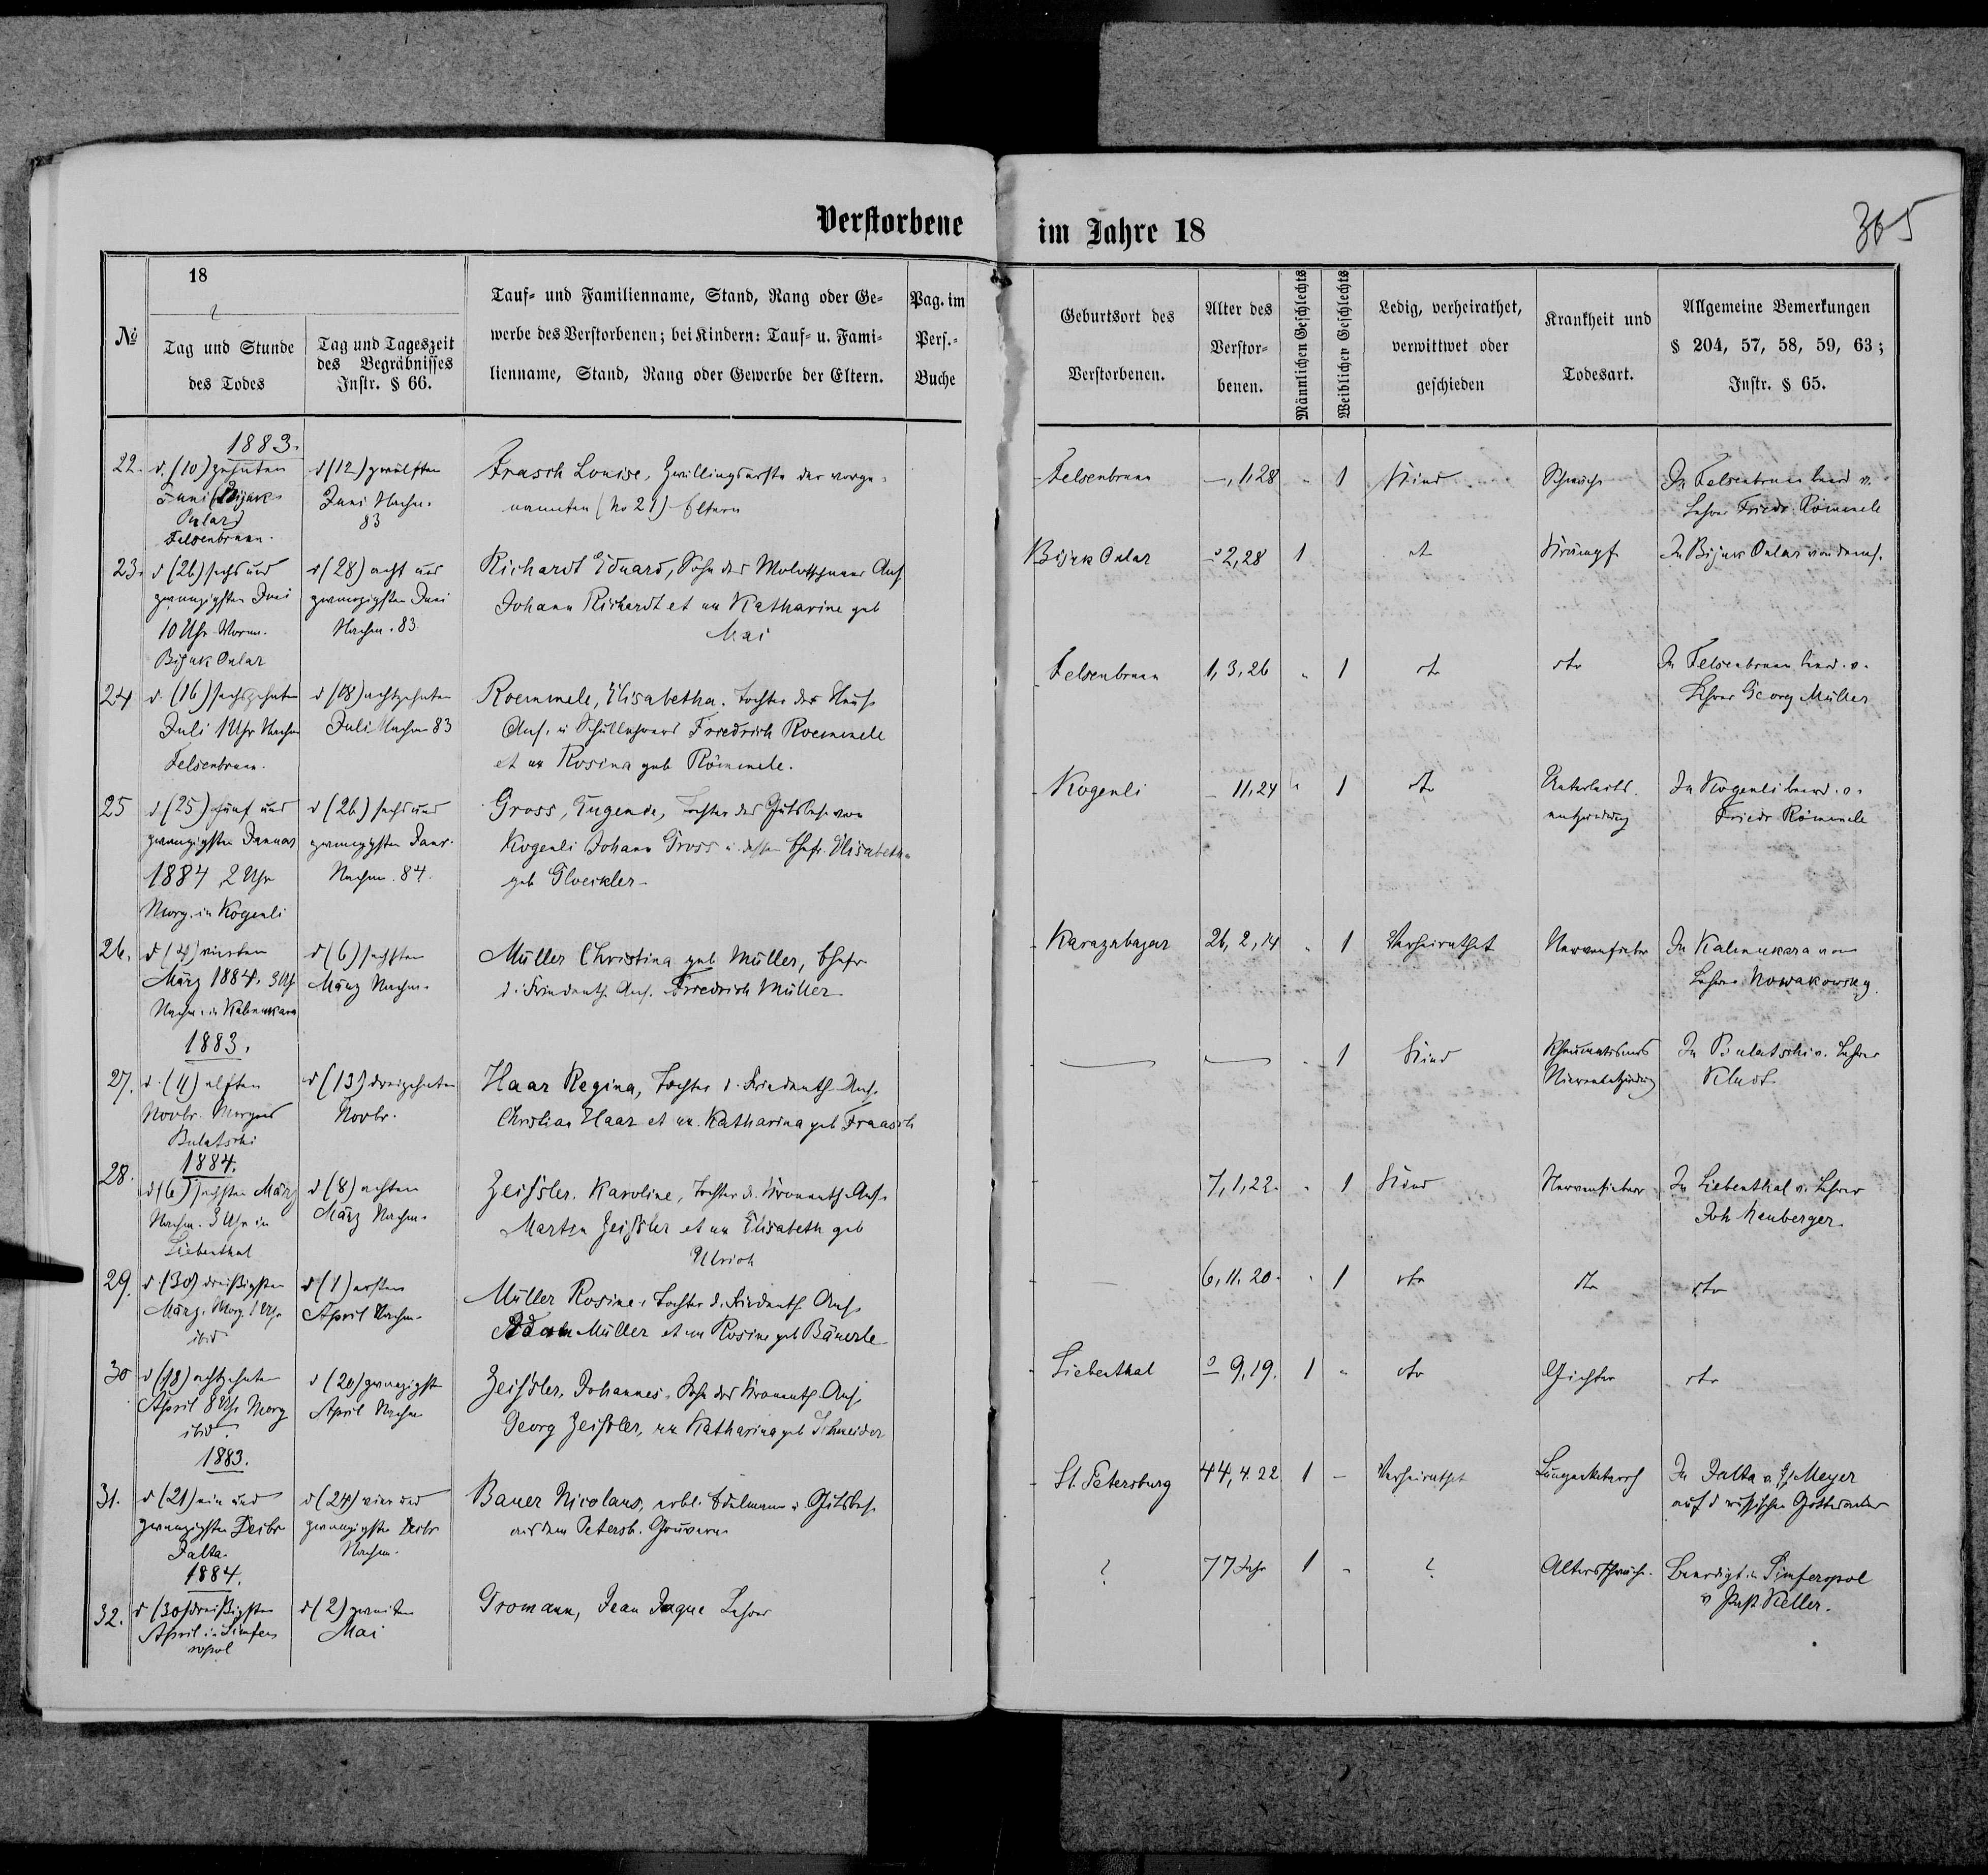 Verstorbene im Jahre 18
365
№
18
Tag und Stunde
des Todes
Tag und Tageszeit
des Begräbnisses
Instr. § 66.
Tauf- und Familienname, Stand, Rang oder Ge-
werbe des Verstorbenen; bei Kindern: Tauf- u. Fami-
lienname, Stand, Rang oder Gewerbe der Eltern.
Pag. im
Pers.-
Buche
Geburtsort des
Verstorbenen.
Alter des
Verstor-
benen.
Männlichen Geschlechts
Weiblichen Geschlechts
Ledig, verheirathet,
verwittwet oder
geschieden
Krankheit und
Todesart.
Allgemeine Bemerkungen
§ 204, 57, 58, 59, 63;
Instr. § 65.
1883.
22. d. (10) zehnten
Juni (Bijuk
Onlar)
Felsenbrunn.
d (12) zwölften
Juni Nachm.
83
Frasch Louise, Zwillingserste der vorge-
nannten (No 21) Eltern
Felsenbrunn
-, 1, 28
1
Kind
Schwäche
In Felsenbrunn beerd v.
Lehrer Friedr. Römmele
23. d (26) sechs und
zwanzigsten Juni
10 Uhr Vorm.
Bijuk Onlar
d (28) acht und
zwanzigsten Juni
Nachm. 83.
Richardt Eduard, Sohn des Ans.
Johann Richardt et ux Katharine geb
Mai
Bijuk Onlar
2, 28
1
dt
Krämpfe
In Bijuk Onlar von dems.
24 d. (16) sechszehnten
Juli 1 Uhr Nachm
Felsenbrunn.
d (18) achtzehnten
Juli Nachm 83
Roemmele, Elisabetha. Tochter des
Ans. u Schullehrers Friedrich Roemmele
et ux Rosina geb Römmele.
Felsenbrunn
1, 3, 26
1
dto
dto
In Felsenbrunn beerd. v.
Lehrer Georg Müller
25 d (25) fünf und
zwanzigsten Januar
1884 2 Uhr
Morg. in Kogenli
d (26) sechs und
zwanzigsten Janr.
Nachm. 84.
Gross, Eugenia, Tochter des Gutsbes. von
Kogenli Johann Gross u. dessen Ehefr. Elisabeth
geb Gloeckler
Kogenli
- 11, 24
1
dto
Unterleibs
entzündung
In Kogenli beerd. v.
Friedr Römmele
26. d (4) vierten
März 1884, 3 Uhr
Nachm. in Kalmukara
d (6) sechsten
März Nachm.
Müller Christina geb Müller, Ehefr
d. Friedenth. Ans. Friedrich Müller
Karazubazar
26, 2, 14
1
Verheirathet
Nervenfieber
In Kalmukara von
Lehrer Nowakowsky.
1883.
27. d. (11) elften
Novbr. Morgens
Bulatschi
d (13) dreizehnten
Novbr.
Haar Regina, Tochter d. Friedenth Ans.
Christian Haar et ux. Katharina geb Fraasch
1
Kind
Rheumatismus
In Bulatschi v. Lehrer
Kludt
1884.
28. d (6) sechsten März
Nachm. 3 Uhr in
Liebenthal
d (8) achten
März Nachm.
Zeissler, Karoline, Tochter d. Kronenth. Ans.
Martin Zeissler et ux Elisabeth geb
Ulrich
7, 1, 22.
1
Kind
Nervenfieber
In Liebenthal v. Lehrer
Joh Neuberger
29. d (30) dreißigsten
März, Morg. 1 Uhr
ibid
d (1) ersten
April Nachm.
Müller Rosine, Tochter d. Friedenth Ans.
Adam Müller et ux Rosine geb Bäuerle
6, 11, 20.
1
dto
dto
dto
30 d (18) achtzehnten
April 8 Uhr Morg
ibid.
d (20) zwanzigsten
April Nachm
Zeissler, Johannes, Sohn des Kronenth. Ans.
Georg Zeissler, ux Katharina geb Schneider
Liebenthal
9, 19.
1
dto
Gichter
dto
1883.
31. d (21) ein und
zwanzigsten Decbr
Jalta.
d (24) vier und
zwanzigsten Decbr
Nachm.
Bauer Nicolaus, erbl. Edelmann u. Gutsbes.
aus dem Petersb. Gouvern.
St. Petersburg
44, 4. 22
1 -
Verheirathet
Lungenkatarrh
In Jalta v. Meyer
auf d russischen Gottesacker
1884.
32. d (30) dreißigsten
April in Simfe
ropol
d (2) zweiten
Mai
Gromann, Jean Jaque Lehrer
?
77 Jahr
1 -
?
Altersschwäche.
Beerdigt in Simferopol
v Past Keller.